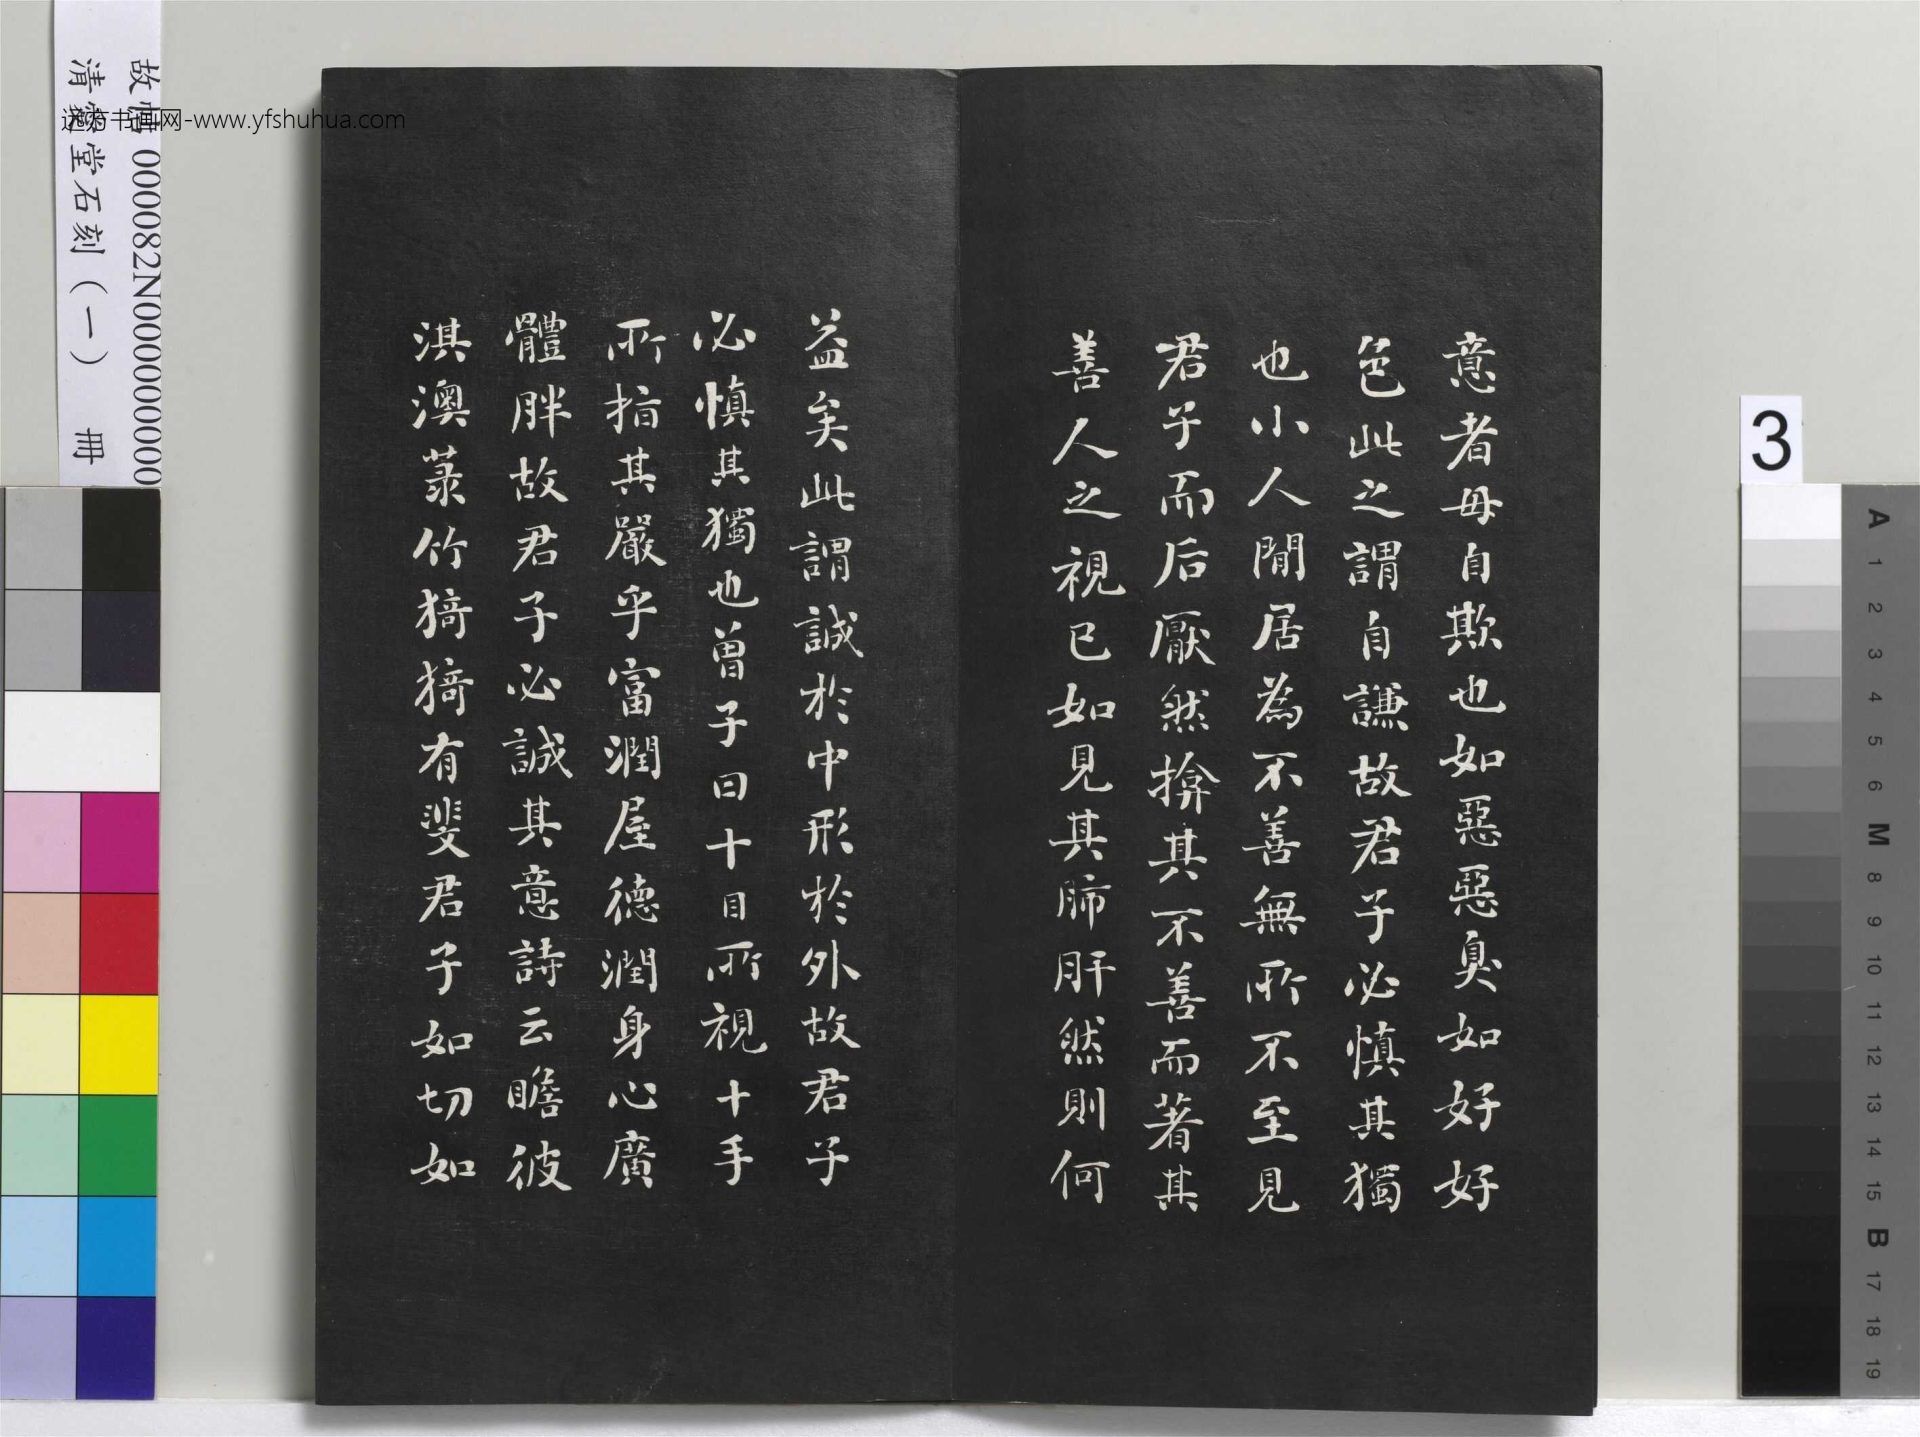 意者毋自欺也如惡惡臭如好好
色此之謂自謙故君子必慎其獨
也小人閒居為不善無所不至見
君子而后厭然揜其不善而著其
善人之視己如見其肺肝然則何
益矣此謂誠於中形於外故君子
必慎其獨也曾子曰十目所視十手
所指其嚴乎富潤屋德潤身心廣
體胖故君子必誠其意詩云瞻彼
淇澳菉竹猗猗有斐君子如切如
故帖 000082N000000000
清愛堂石刻(一) 冊
远方书画网-www.yfshuhua.com
3
A 1 2 3 4 5 6 M 8 9 10 11 12 13 14 15 B 17 18 19